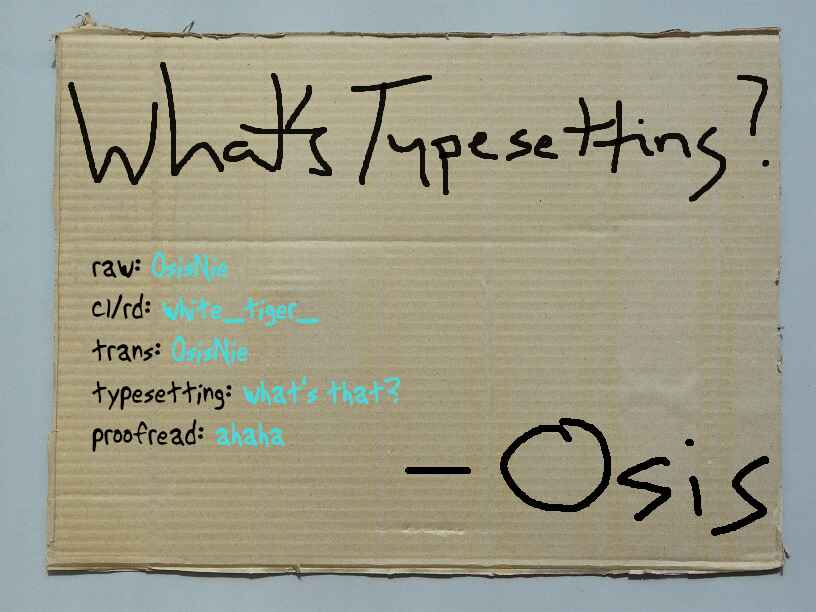 What's Typesetting?
raw: OsisNie
cl/rd: white_tiger_
trans: OsisNie
typesetting: what's that?
proofread: ahaha
- Osis